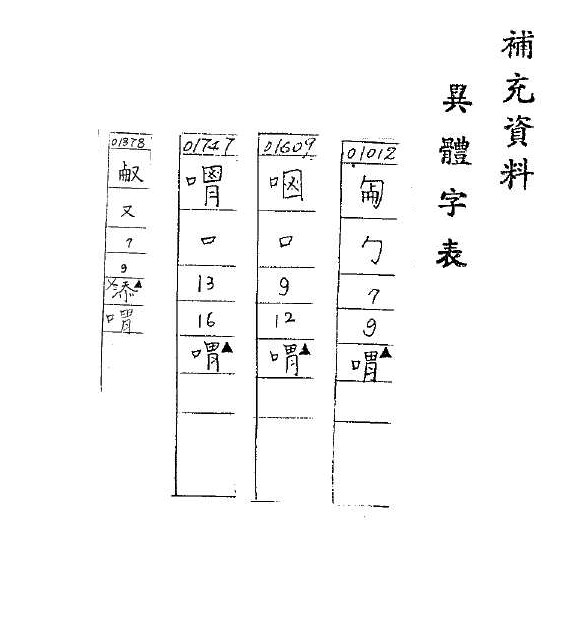 補充資料
異體字表
01012
勹
7
9
喟▲
01609
口
9
12
喟▲
01747
口
13
16
喟▲
01378
又
7
9
添▲
喟